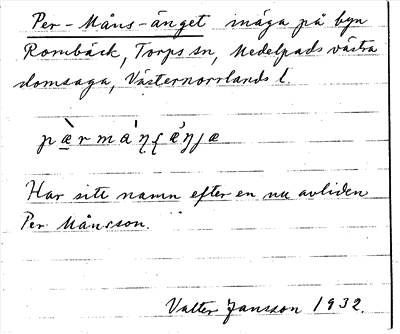 Per-Måns-änget inäga på byn
Rombäck, Torps sn, Medelpads västra
domsaga, Västernorrlands l.
Har sitt namn efter en nu avliden
Per Månsson.
Valter Jansson 1932.